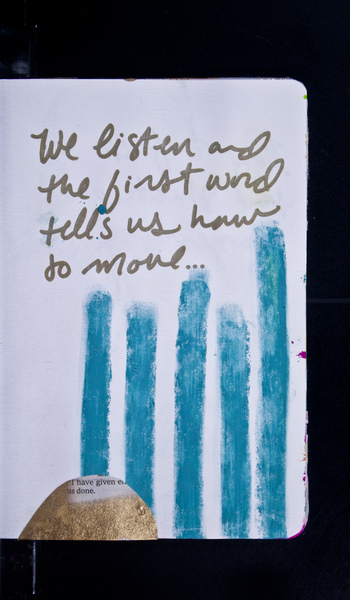 We listen and
the first word
tells us how
to move...
I have given
as done.